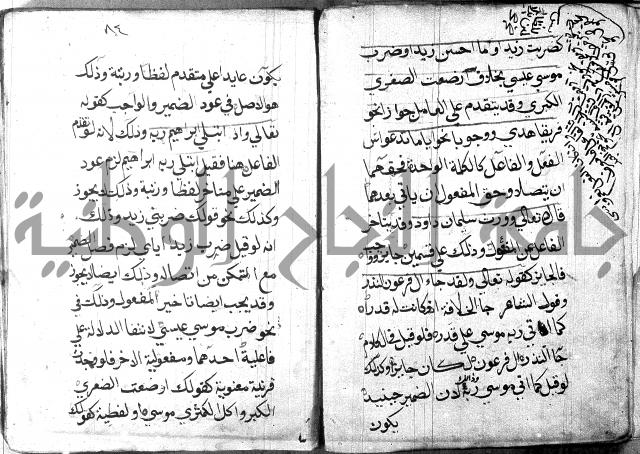 كضربت زيد وما احسن زيدا وضرب
موسى عيسى بخلاف ارضعت الصغرى
الكبرى وقد يتقدم على العامل جوازا نحو
فريقا هدى ووجوبا نحو ايا ما تدعوا ش
الفعل والفاعل كالكلمة الواحدة فحقهما
ان يتصلا وحق المفعول ان ياتي بعدهما
قال تعالى وورث سليمان داود وقد يتاخر
الفاعل عن المفعول وذلك على قسمين جايز وواجب
فالجايز كقوله تعالى ولقد جاء ال فرعون النذر
وقول الشاعر جا الخلافة او كانت له قدرا
كما اتى ربه موسى على قدر فلو قيل في الكلام
جا النذر ال فرعون لكان جايزا وكذلك
لو قيل كما اتى موسى ربه وذلك لان الضمير حينيذ
يكون
٨٤
يكون عايدا على متقدم لفظا ورتبة وذلك
هو الاصل في عود الضمير والواجب كقوله
تعالى واذ ابتلى ابراهيم ربه وذلك لانه لو تقدم
الفاعل هنا فقيل ابتلى ربه ابراهيم لزم عود
الضمير على متاخر لفظا ورتبة وذلك لا يجوز
وكذلك نحو قولك ضربني زيد وذلك
انه لو قيل ضرب زيد اياي لزم فصل الضمير
مع التمكن من اتصاله وذلك ايضا لا يجوز
وقد يجب ايضا تاخير المفعول وذلك في
نحو ضرب موسى عيسى لانتفا الدلالة على
فاعلية احدهما ومفعولية الاخر فلو وجدت
قرينة معنوية كقولك ارضعت الصغرى
الكبرى واكل الكمثرى موسى او لفظية كقولك
جامعة النجاح الوطنية